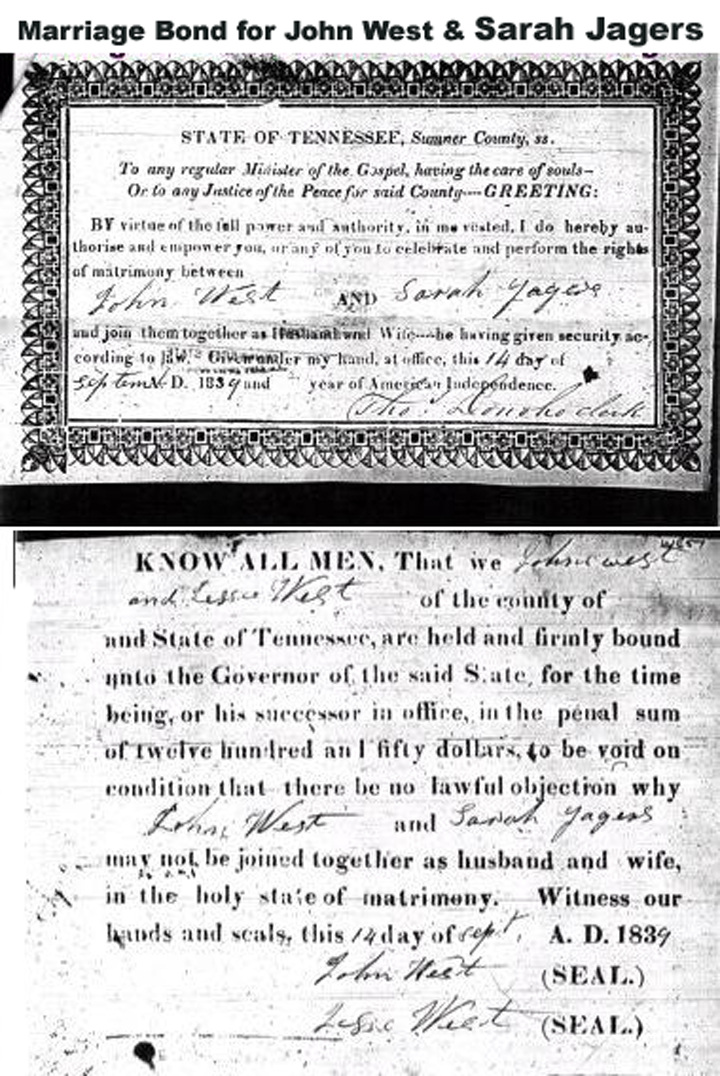 Marriage Bond for John West & Sarah Jagers
STATE OF TENNESSEE, Sumner County, ss.
To any regular Minister of the Gospel, having the care of souls—
Or to any Justice of the Peace for said County---GREETING:
BY virtue of the full power and authority, in me vested, I do hereby au-
thorise and empower you, or any of you to celebrate and perform the rights
of matrimony between
John West AND Sarah Jagers
and join them together as Husband and Wife---he having given security ac-
cording to law. Given under my hand, at office, this 14 day of
Septem A. D. 1839 and year of American Independence.
Tho.s Donoho clerk
KNOW ALL MEN, That we John West
and West of the county of
and State of Tennessee, are held and firmly bound
unto the Governor of the said State, for the time
being, or his successor in office, in the penal sum
of twelve hundred and fifty dollars, to be void on
condition that there be no lawful objection why
John West and Sarah Jagers
may not be joined together as husband and wife,
in the holy state of matrimony. Witness our
hands and seals, this 14 day of Sept. A. D. 1839
John West (SEAL.)
West (SEAL.)